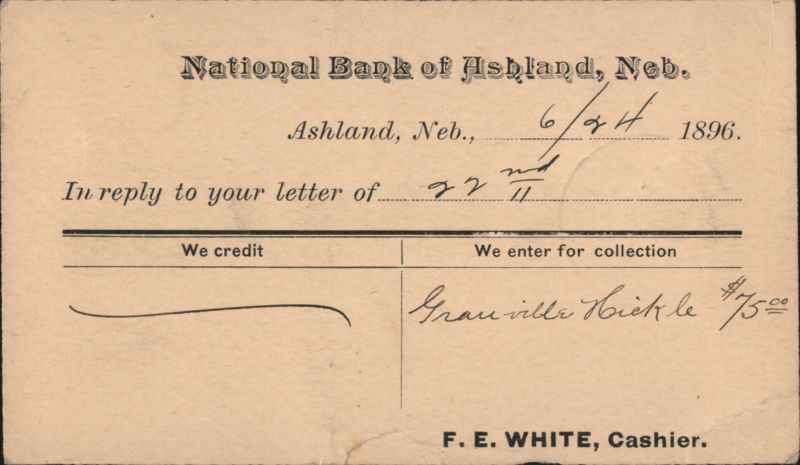 National Bank of Ashland, Neb.
Ashland, Neb., 6/24 1896.
In reply to your letter of 22nd
We credit We enter for collection
Granville Hickle $75.00
F. E. WHITE, Cashier.